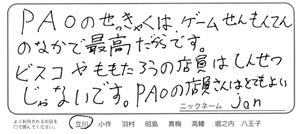 PAOのせっきゃくは、ゲームせんもんてん
のなかで最高だぞです。
ビスコやももたろうの店員はしんせつ
じゃないです。PAOの店員さんはとてもよい
ニックネーム Jon
よく利用されるお店を
○で囲んでください。
立川 小作 羽村 昭島 青梅 高幡 堀之内 八王子